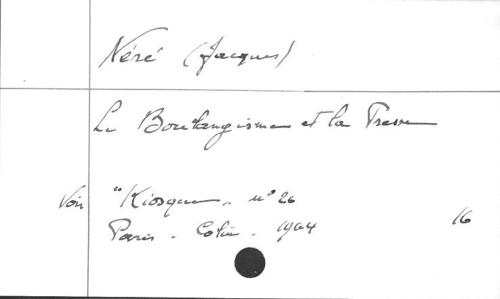 Néré (Jacques)
Le Boulangisme et la Presse
Voir "Kiosque" n° 26
Paris - Colin - 1964
16